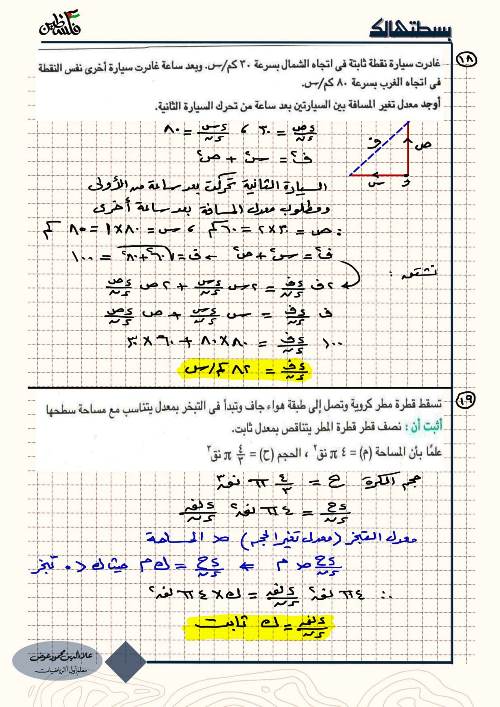 فلسطين
بسطتهالك
١٨
غادرت سيارة نقطة ثابتة فى اتجاه الشمال بسرعة ٣٠ كم/س. وبعد ساعة غادرت سيارة أخرى نفس النقطة
فى اتجاه الغرب بسرعة ٨٠ كم/س.
أوجد معدل تغير المسافة بين السيارتين بعد ساعة من تحرك السيارة الثانية.
ءص/ءن = ٣٠ ، ءس/ءن = ٨٠
ف² = س² + ص²
ف
ص
س
و
السيارة الثانية تحركت بعد ساعة من الأولى
ومطلوب معدل المسافة بعد ساعة أخرى
∴ ص = ٣٠×٢ = ٦٠ كم ، س = ٨٠×١ = ٨٠ كم
ف² = س² + ص² ← ف = √(٦٠² + ٨٠²) = ١٠٠
نشتق :
٢ف ءف/ءن = ٢س ءس/ءن + ٢ص ءص/ءن
ف ءف/ءن = س ءس/ءن + ص ءص/ءن
١٠٠ ءف/ءن = ٨٠×٨٠ + ٦٠×٣٠
ءف/ءن = ٨٢ كم/س
١٩
تسقط قطرة مطر كروية وتصل إلى طبقة هواء جاف وتبدأ فى التبخر بمعدل يتناسب مع مساحة سطحها
أثبت أن : نصف قطر قطرة المطر يتناقص بمعدل ثابت.
علمًا بأن المساحة (م) = ٤ π نق² ، الحجم (ح) = ٤/٣ π نق³
حجم الكرة ح = ٤/٣ π نق³
ءح/ءن = ٤ π نق² ءنق/ءن
معدل التبخر (معدل تغير الحجم) ∝ المساحة
ءح/ءن ∝ م ← ءح/ءن = ك م حيث ك < ٠ تبخر
∴ ٤ π نق² ءنق/ءن = ك × ٤ π نق²
ءنق/ءن = ك ثابت
علاء الدين محمود عوض
معلم أول الرياضيات